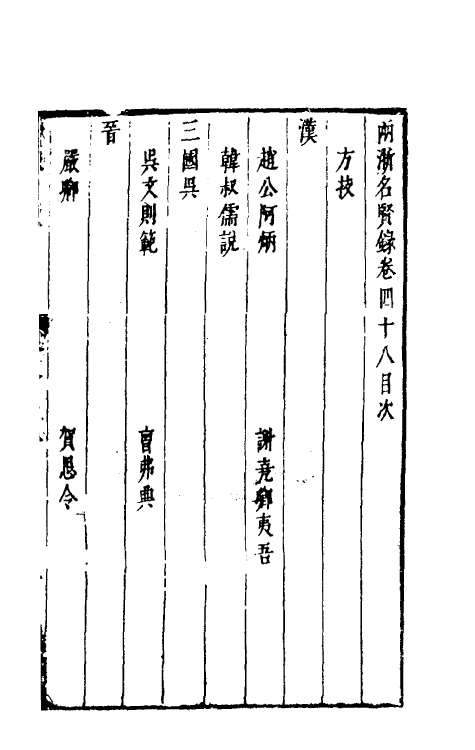 兩浙名賢錄卷四十八目次
方技
漢
趙公阿炳 謝堯卿夷吾
韓叔儒說
三國吳
吳文則範 曹弗興
晉
嚴卿 賀思令